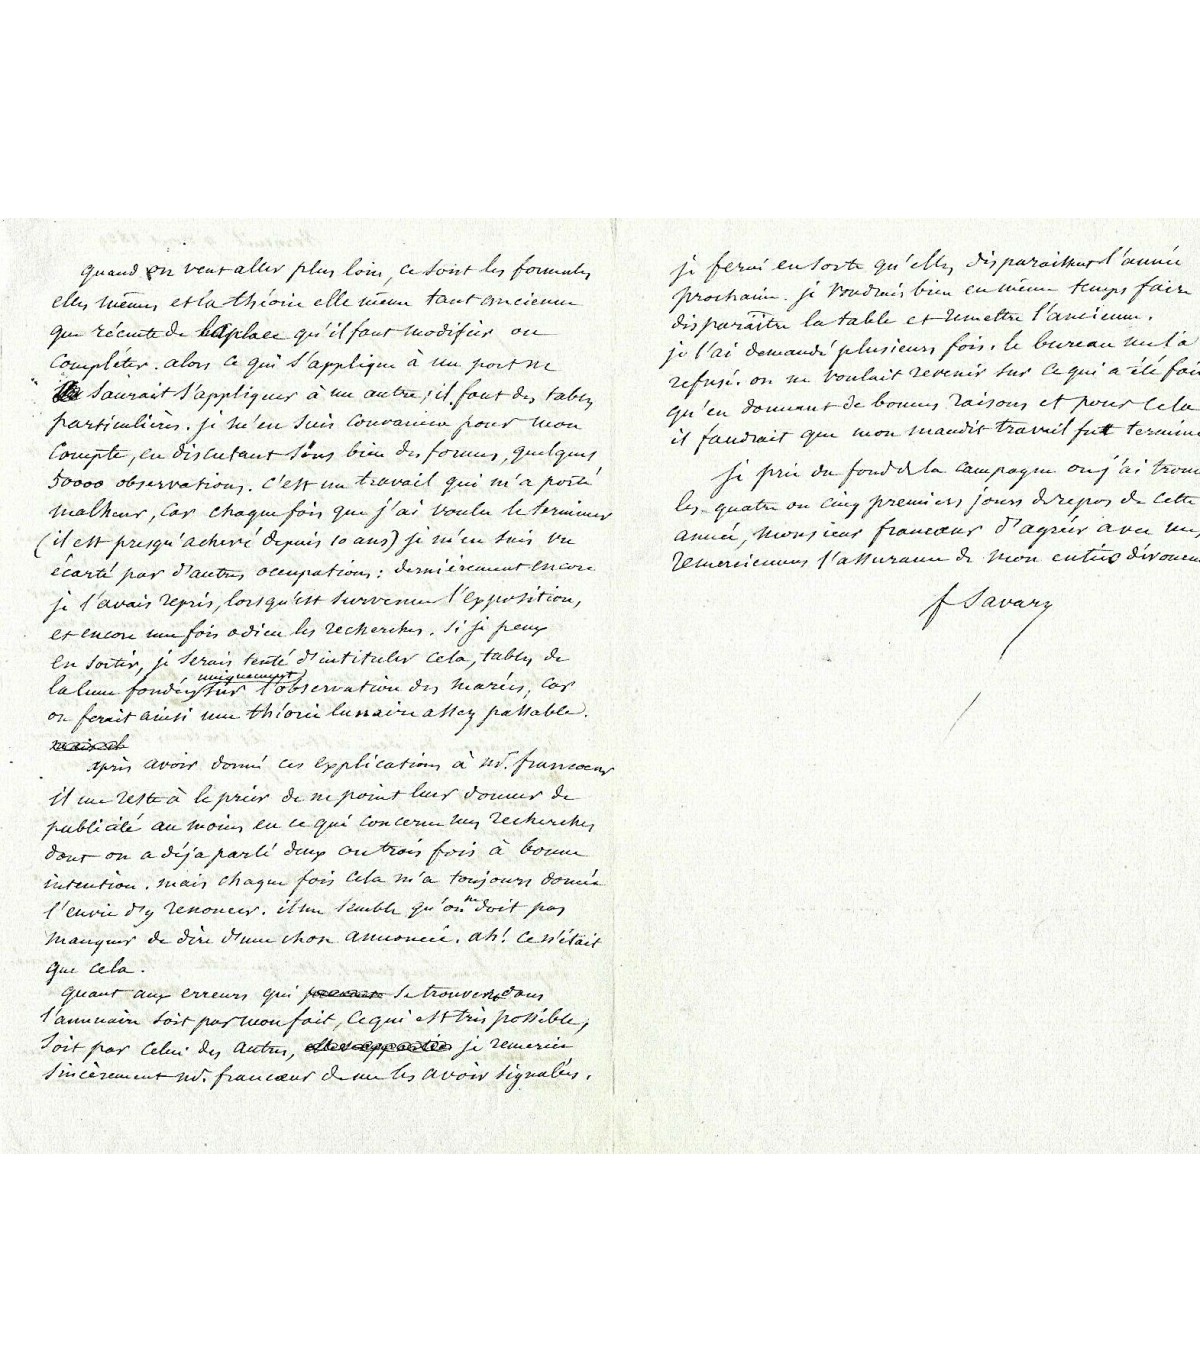 quand on veut aller plus loin, ce sont les formules
elles mêmes et la théorie elle même tant ancienne
que récente de laplace qu'il faut modifier ou
compléter. alors ce qui s'applique à un port ne
saurait s'appliquer à un autre; il faut des tables
particulières. je m'en suis convaincu pour mon
compte, en discutant sous bien des formes, quelques
50000 observations. c'est un travail qui m'a porté
malheur, car chaque fois que j'ai voulu le terminer
(il est presqu'achevé depuis 10 ans) je m'en suis vu
écarté par d'autres occupations: dernièrement encore
je l'avais repris, lorsqu'est survenue l'exposition,
et encore une fois adieu les recherches. si je peux
en sortir, je serais tenté d'intituler cela, tables de
la lune fondées uniquement sur l'observation des marées, car
on ferait ainsi une théorie lunaire assez passable.
après avoir donné ces explications à mr. francoeur
il me reste à le prier de ne point leur donner de
publicité au moins en ce qui concerne mes recherches
dont on a déja parlé deux ou trois fois à bonne
intention. mais chaque fois cela m'a toujours donné
l'envie d'y renoncer. il me semble qu'on ne doit pas
manquer de dire d'une chose annoncée. ah! ce n'était
que cela.
quant aux erreurs qui se trouvent dans
l'annuaire soit par mon fait, ce qui est très possible,
soit par celui des autres, je remercie
sincèrement mr. francoeur de me les avoir signalées.
je ferai en sorte qu'elles disparaissent l'année
prochaine. je voudrais bien en même temps faire
disparaître la table et remettre l'ancienne.
je l'ai demandé plusieurs fois. le bureau me l'a
refusé. on ne voulait revenir sur ce qui a été fai
qu'en donnant de bonnes raisons et pour cela
il faudrait que mon maudit travail fut terminé
je prie du fond de la campagne ou j'ai trouv
les quatre ou cinq premiers jours de repos de cette
année, monsieur francoeur d'agréer avec mes
remerciemens l'assurance de mon entier dévouem
f Savary